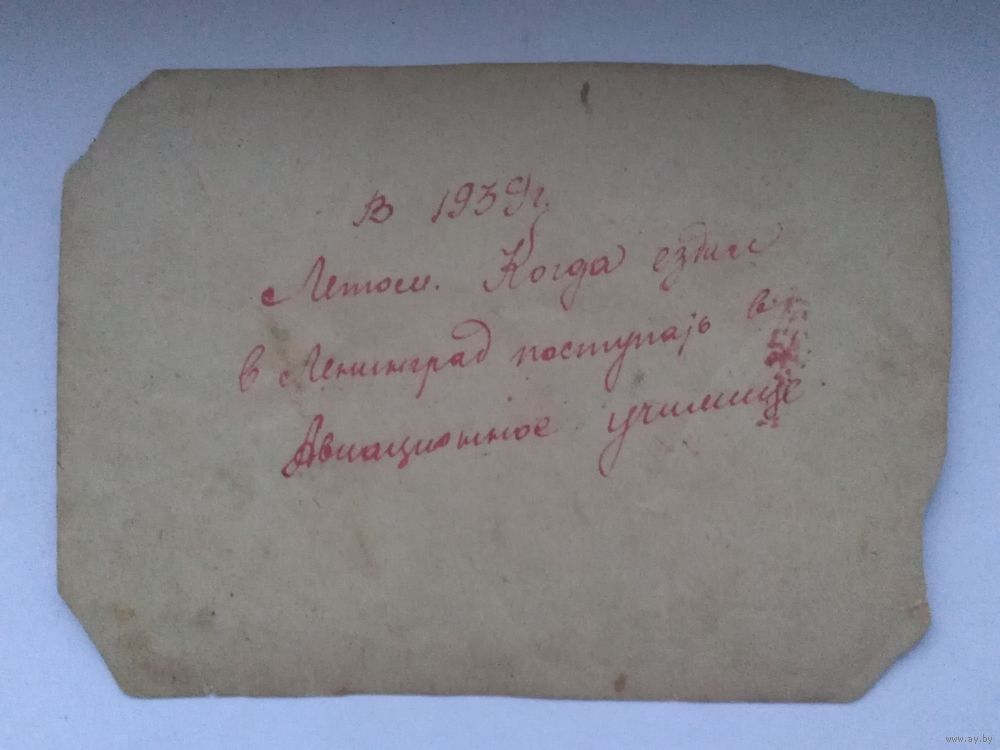 В 1939г.
Летом. Когда ездил
в Ленинград поступать в
Авиационное училище.
www.ay.by